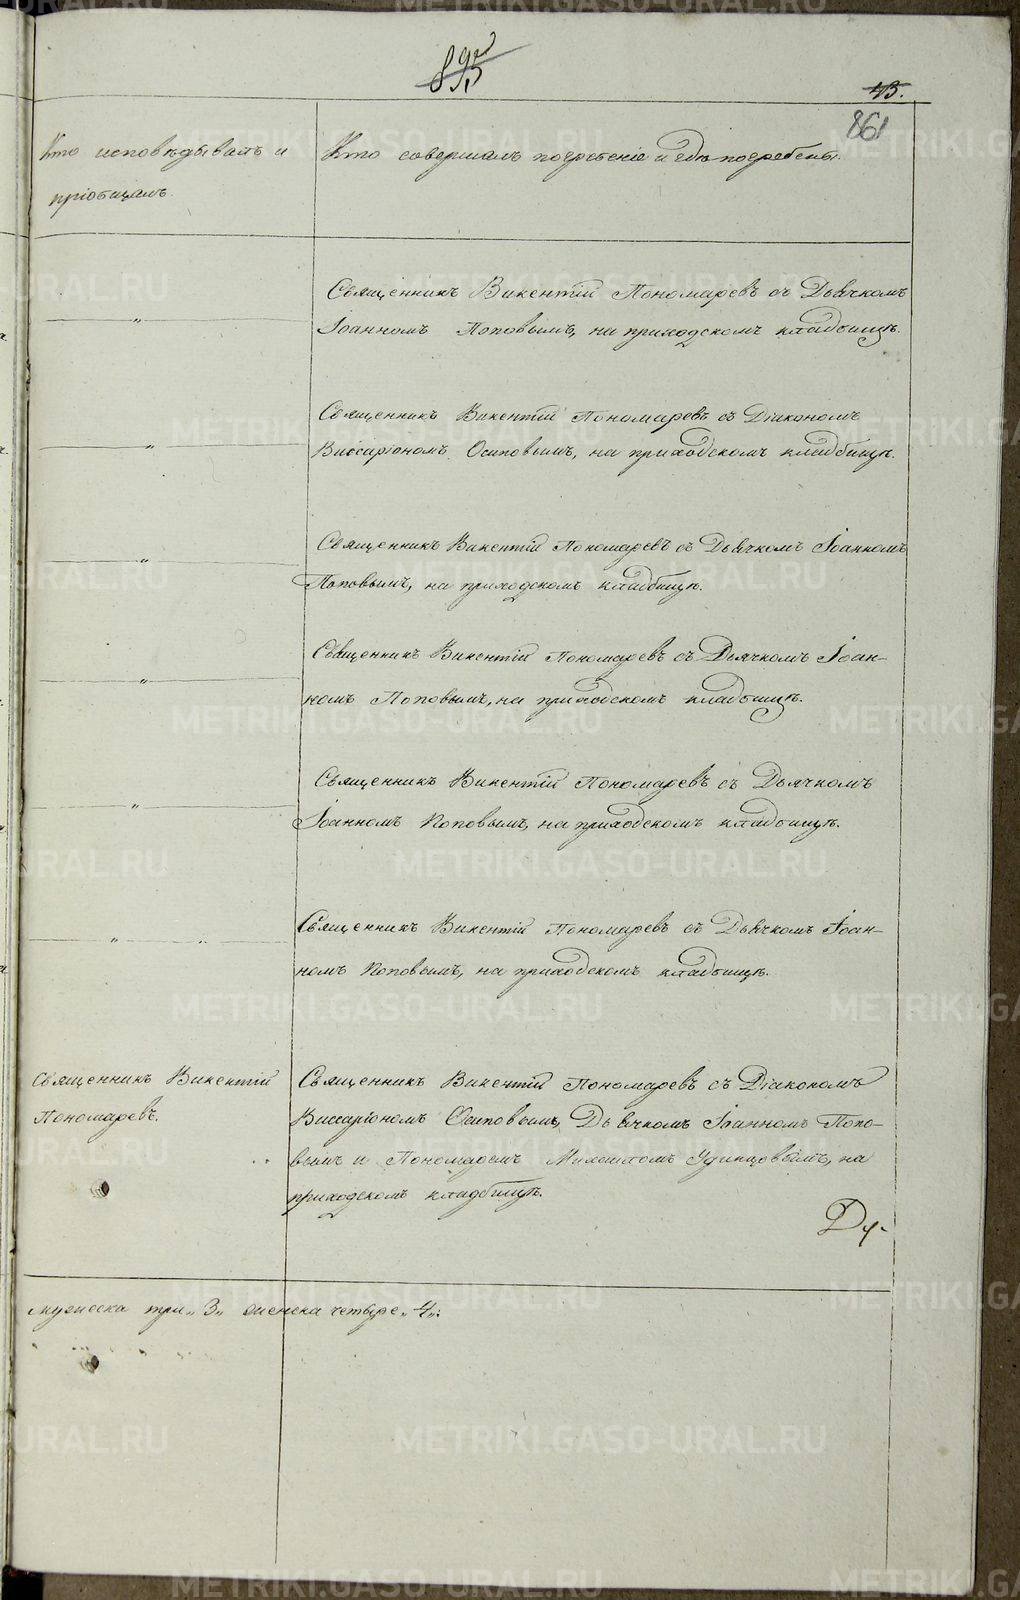 895
43.
861
Кто исповѣдывалъ и
пріобщалъ.
Кто совершалъ погребеніе и гдѣ погребены.
Священникъ Викентій Пономаревъ съ Дьячкомъ
Іоанномъ Поповымъ, на приходскомъ кладбищѣ.
Священникъ Викентій Пономаревъ съ Діакономъ
Виссаріономъ Осиповымъ, на приходскомъ кладбищѣ.
Священникъ Викентій Пономаревъ съ Дьячкомъ Іоанномъ
Поповымъ, на приходскомъ кладбищѣ.
Священникъ Викентій Пономаревъ съ Дьячкомъ Іоан-
номъ Поповымъ, на приходскомъ кладбищѣ.
Священникъ Викентій Пономаревъ съ Дьячкомъ
Іоанномъ Поповымъ, на приходскомъ кладбищѣ.
Священникъ Викентій Пономаревъ съ Дьячкомъ Іоан-
номъ Поповымъ, на приходскомъ кладбищѣ.
Священникъ Викентій
Пономаревъ.
Священникъ Викентій Пономаревъ съ Діакономъ
Виссаріономъ Осиповымъ, Дьячкомъ Іоанномъ Попо-
вымъ и Пономаремъ Удинцовымъ, на
приходскомъ кладбищѣ.
Ду-
мужеска три „3„ женска четыре „4„:
METRIKI.GASO-URAL.RU